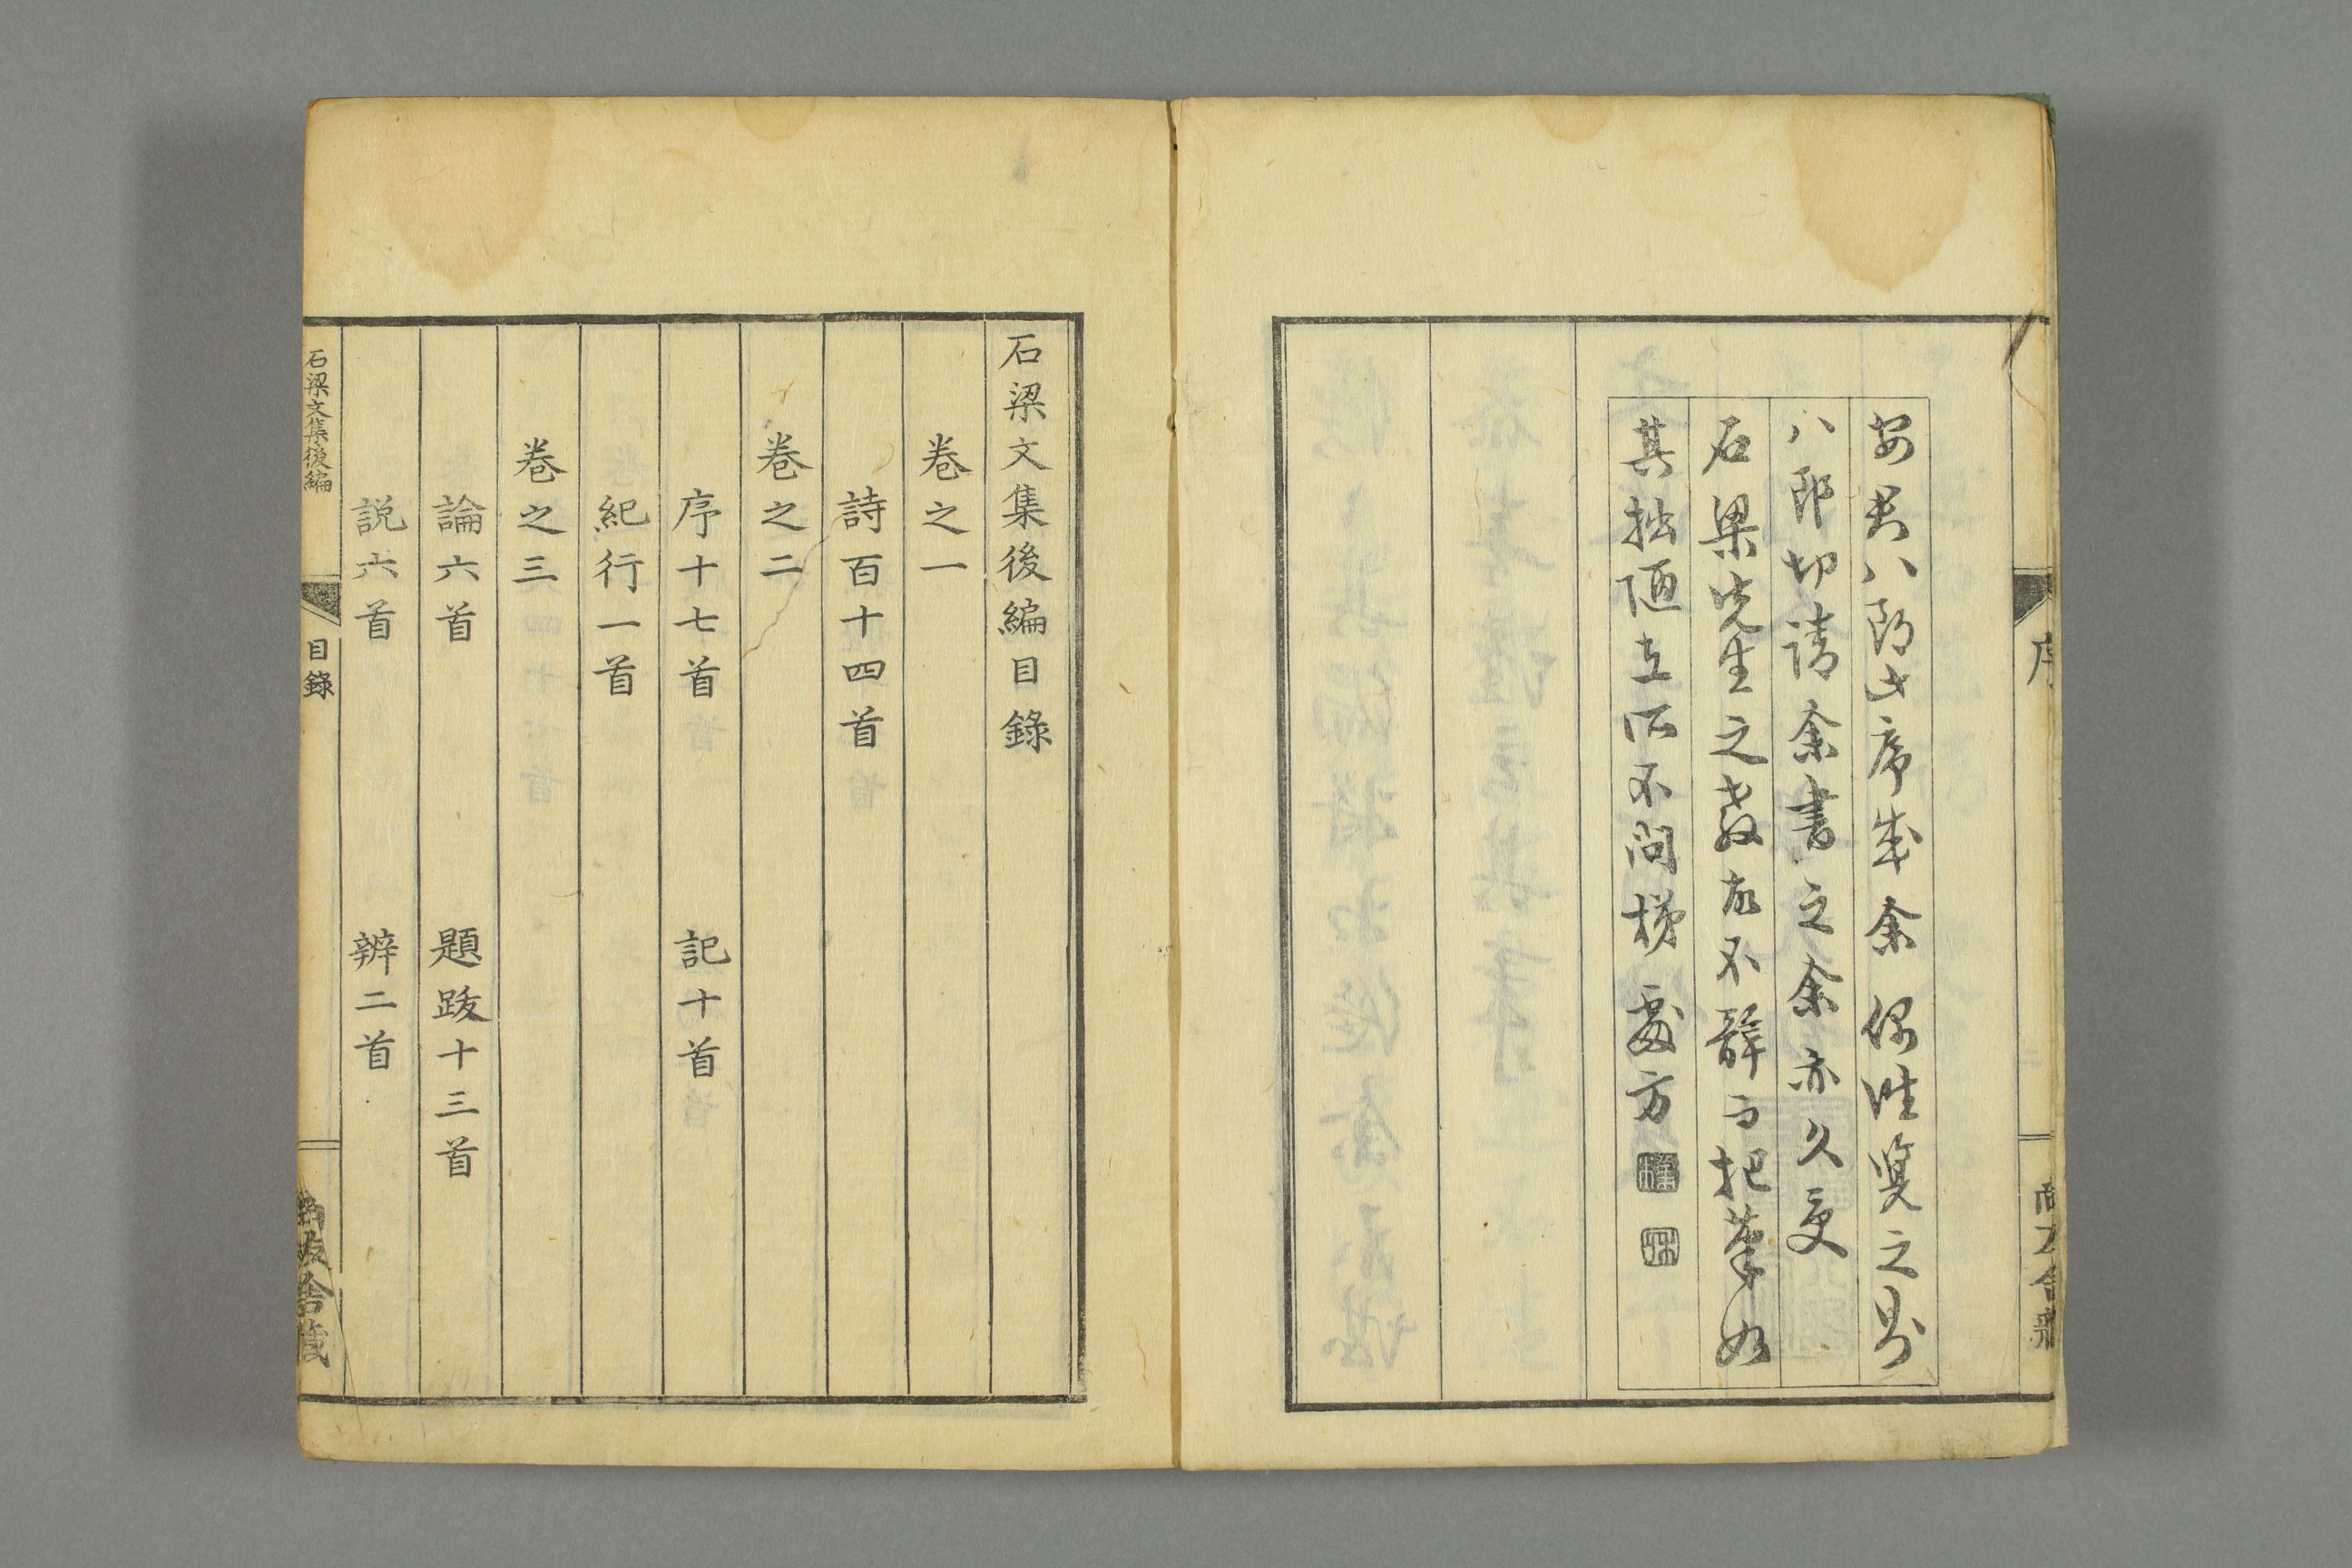 安井八郎此序成余偶往奠之男
八郎切請余書之余亦久受
石梁先生之教故不辭而把筆如
其拙陋立所不問樺島方
序
石梁文集後編目錄
卷之一
詩百十四首
卷之二
序十七首 記十首
紀行一首
卷之三
論六首 題跋十三首
説六首 辨二首
石梁文集後編
目錄
友舎藏